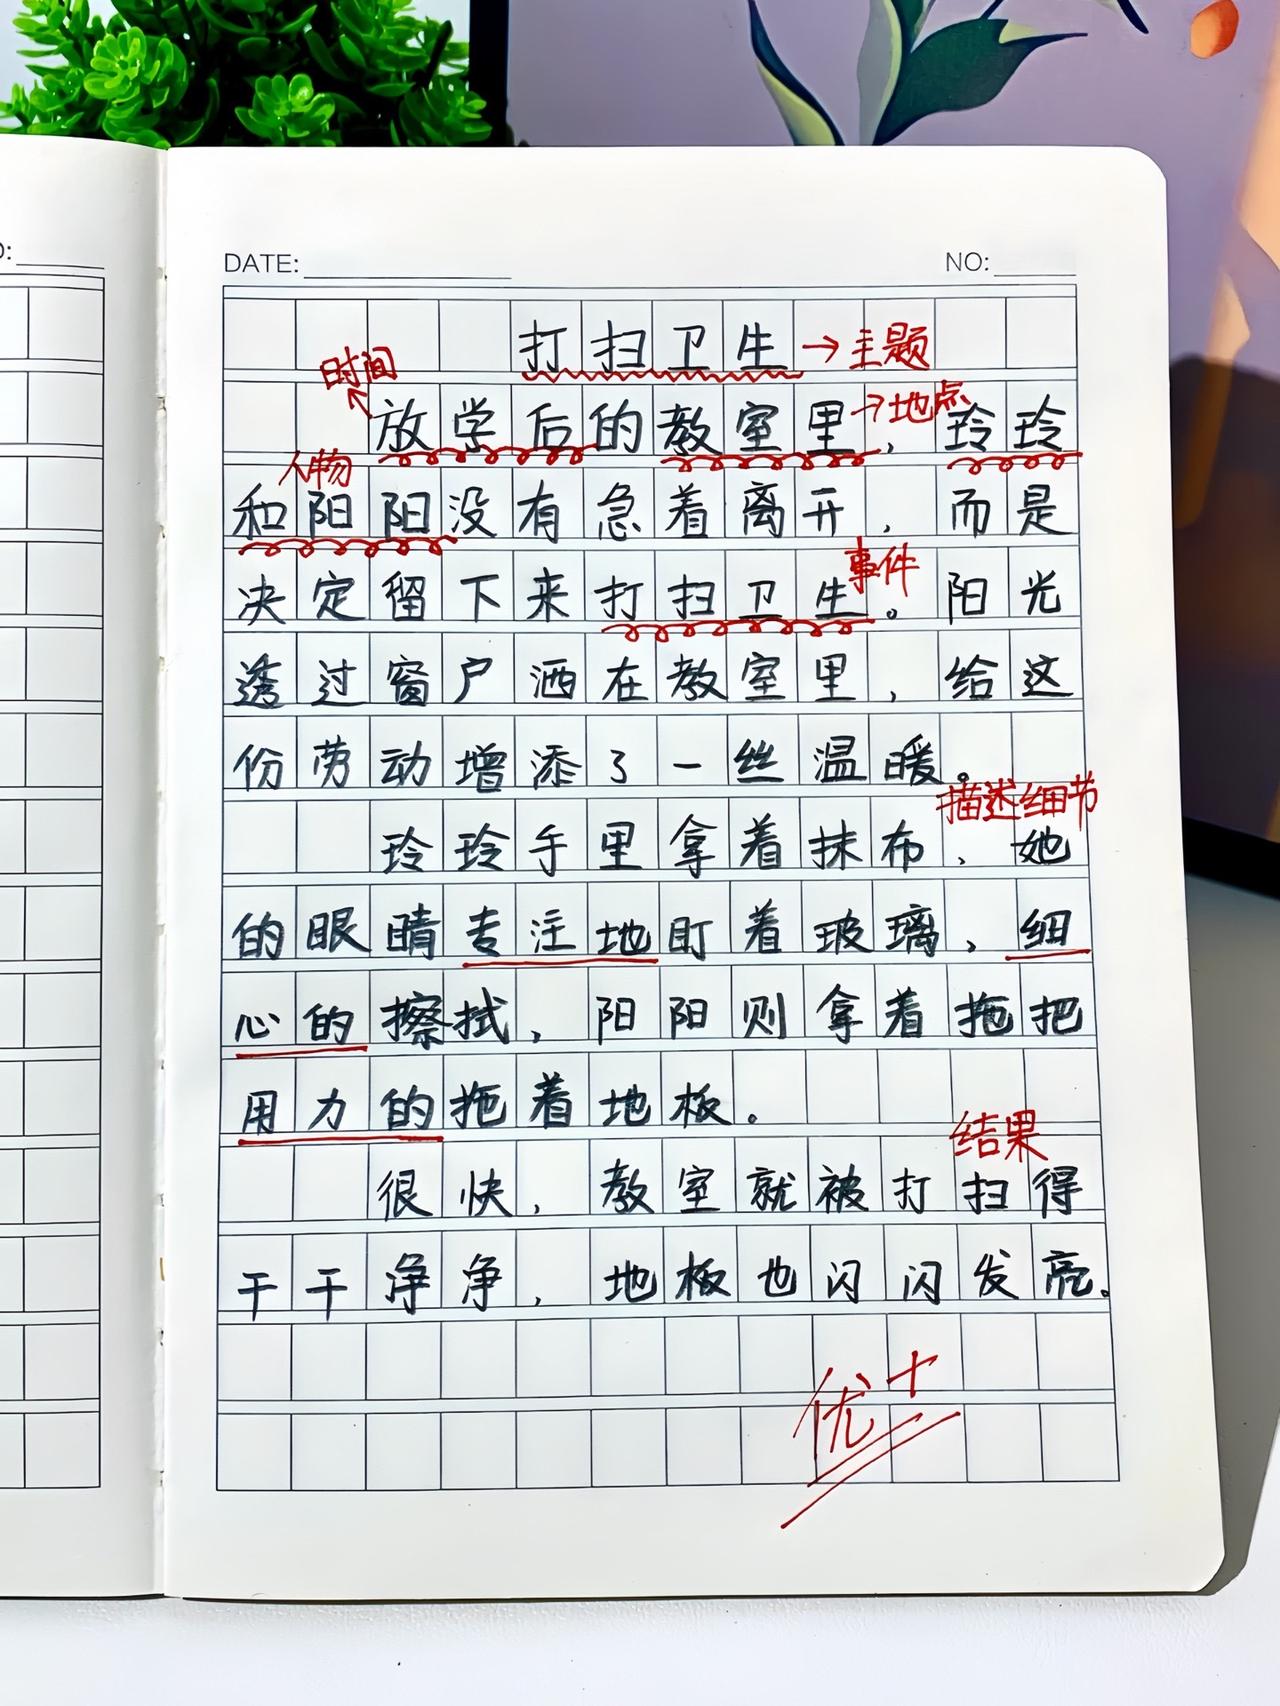 DATE:
NO:
打扫卫生→主题
时间
放学后的教室里→地点，玲玲
人物
和阳阳没有急着离开，而是
事件
决定留下来打扫卫生。阳光
透过窗户洒在教室里，给这
份劳动增添了一丝温暖。
描述细节
玲玲手里拿着抹布，她
的眼睛专注地盯着玻璃，细
心的擦拭，阳阳则拿着拖把
用力的拖着地板。
结果
很快，教室就被打扫得
干干净净，地板也闪闪发亮。
优+